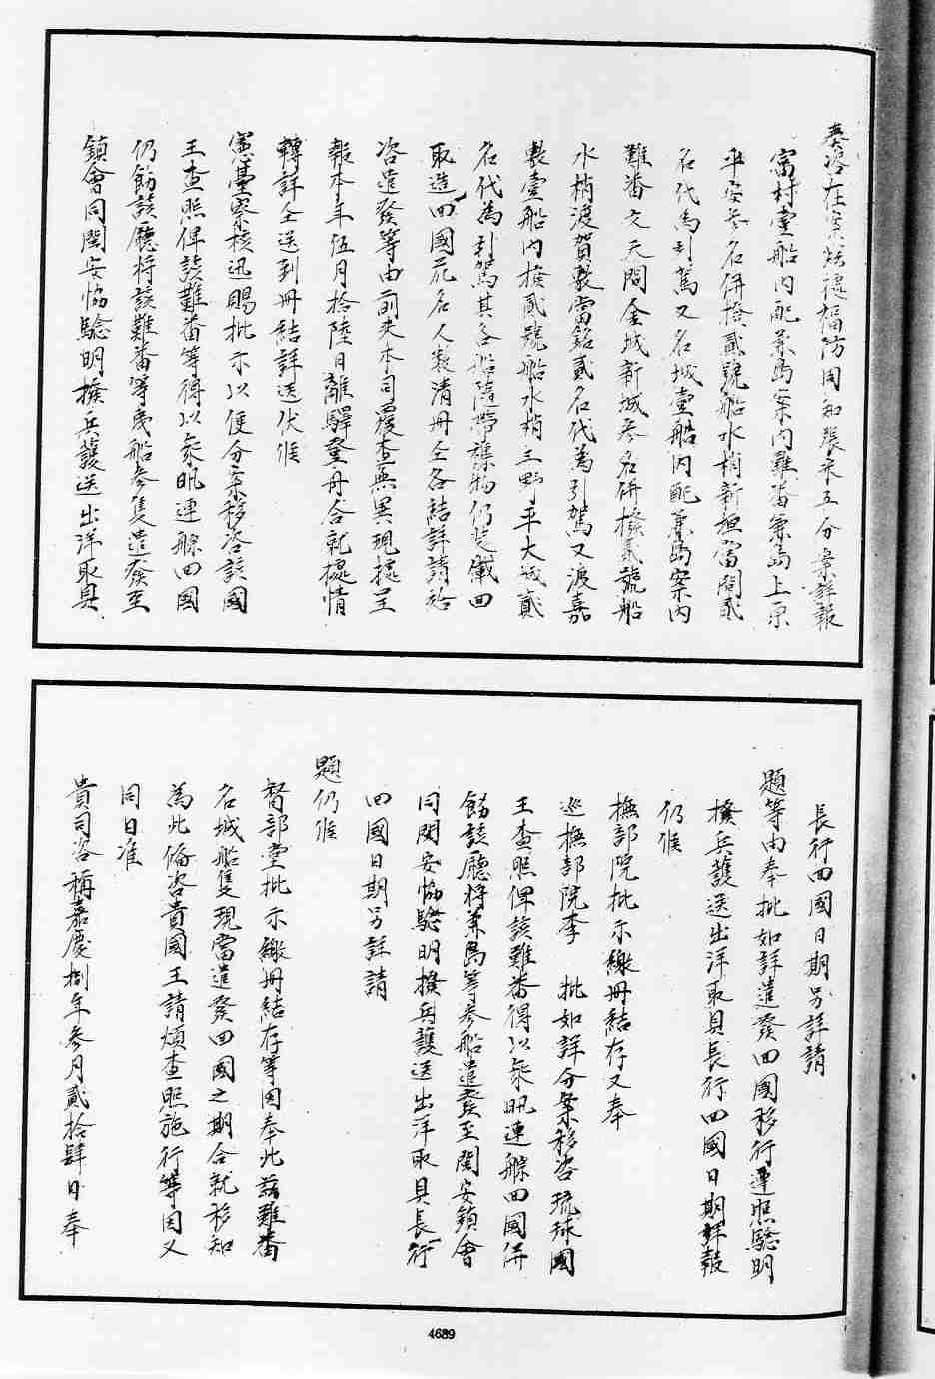 奏咨在案玆據福防同知張采五分案詳報
富村壹船內配兼島案內難番兼島上原
平安參名併撥貳號船水梢新垣當間貳
名代為引駕又名城壹船內配兼島案內
難番文天間金城新城參名併撥貳號船
水梢渡賀製當銘貳名代為引駕又渡嘉
敷壹船內撥貳號船水梢三平大城貳
名代為引駕其各船隨帶糠物仍裝儎回
取造回國花名人數清冊仝各結詳請給
咨遣發等由前來本司覆查無異現據呈
報本年伍月拾陸日離驛登舟合就據情
轉詳仝送到冊結詳送伏候
憲臺察核迅賜批示以便分案移咨該國
王查照俾該難番等得以乘汛連䑸回國
仍飭該廳將該難番等夷船參隻遣發至
鎮會同閩安協驗明撥兵護送出洋取具
長行回國日期另詳請
題等由奉批如詳遣發回國移行遵照驗明
撥兵護送出洋取具長行回國日期詳報
仍候
撫部院批示繳冊結存又奉
巡撫部院李 批如詳分案移咨琉球國
王查照俾該難番得以乘汛連䑸回國併
飭該廳將兼島等參船遣發至閩安鎮會
同閩安協驗明撥兵護送出洋取具長行
回國日期另詳請
題仍候
督部堂批示繳冊結存等因奉此茲難番
名城船隻現當遣發回國之期合就移知
為此備咨貴國王請煩查照施行等因又
同日准
貴司咨稱嘉慶捌年參月貳拾肆日奉
4689